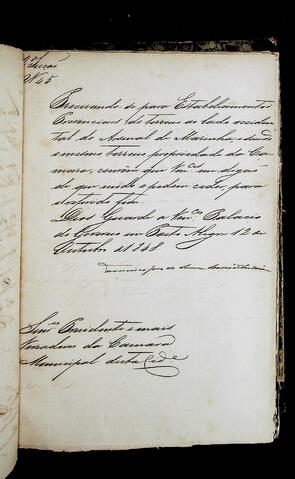 2ª Secção
Nº 45
Precisando-se para Estabelecimentos
Provinciaes do terreno ao lado occiden-
tal do Arsenal de Marinha, e sendo
o mesmo terreno propriedade da Ca-
mara, convem que Vmces me digão
de que modo o podem ceder para
o referido fim.
Deos Guarde a Vmces Palacio
do Governo em Porto Alegre 12 de
Outubro de 1848
Snres Presidente e mais
Vereadores da Camara
Municipal desta Cide